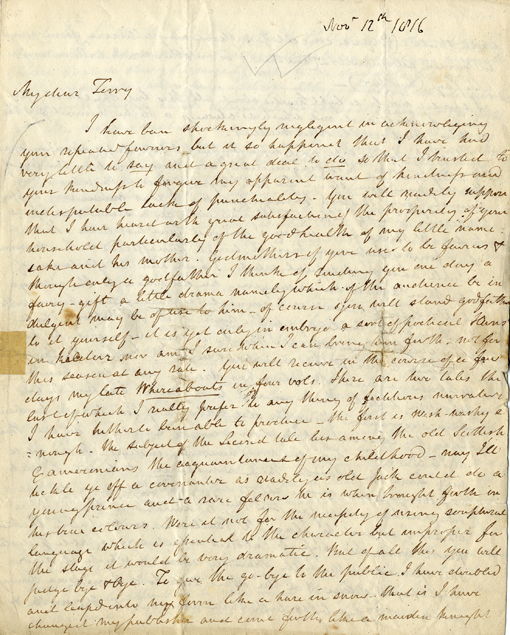 Novr 12th 1816
My dear Terry
I have been shockingly negligent in acknowledging
your repeated favours but it so happened that I have had
very little to say and a great deal to do so that I trusted to
your kindness to forgive my apparent want of kindness and
indisputable lack of punctuality. You will readily suppose
that I have heard with great satisfaction of the prosperity of your
household particularly of the good health of my little name-
sake and his mother. Godmothers of yore use to be fairies &
though only a godfather I think of sending you one day a
fairy-gift a little drama namely which if the audience be in
dulgent may be of use to him. Of course you will stand godfather
to it yourself - it is yet only in embryo a sort of poetical Hans
in Kelder nor am I sure when I can bring him forth not for
this season at any rate. You will receive in the course of a few
days my late Whereabouts in four vols. There are two tales the
last of which I really prefer to any thing of fictitious narrative
I have hitherto been able to produce - the first is wish-washy e
=nough. The subject of the second tale lies among the old Scottish
Cameronians the acquaintances of my childhood - nay Ill
tickle ye off a covenanter as readily as old Jack could do a
young prince and a rare fellow he is when brought forth in
his true colours. Were it not for the necessity of using scriptural
language which is essential to the character but improper for
the stage it would be very dramatic. But of all this you will
judge bye & bye. To give the go-bye to the public I have doubled
and leaped into my form like a hare in snow - that is I have
changed my publisher and come forth like a maiden knight